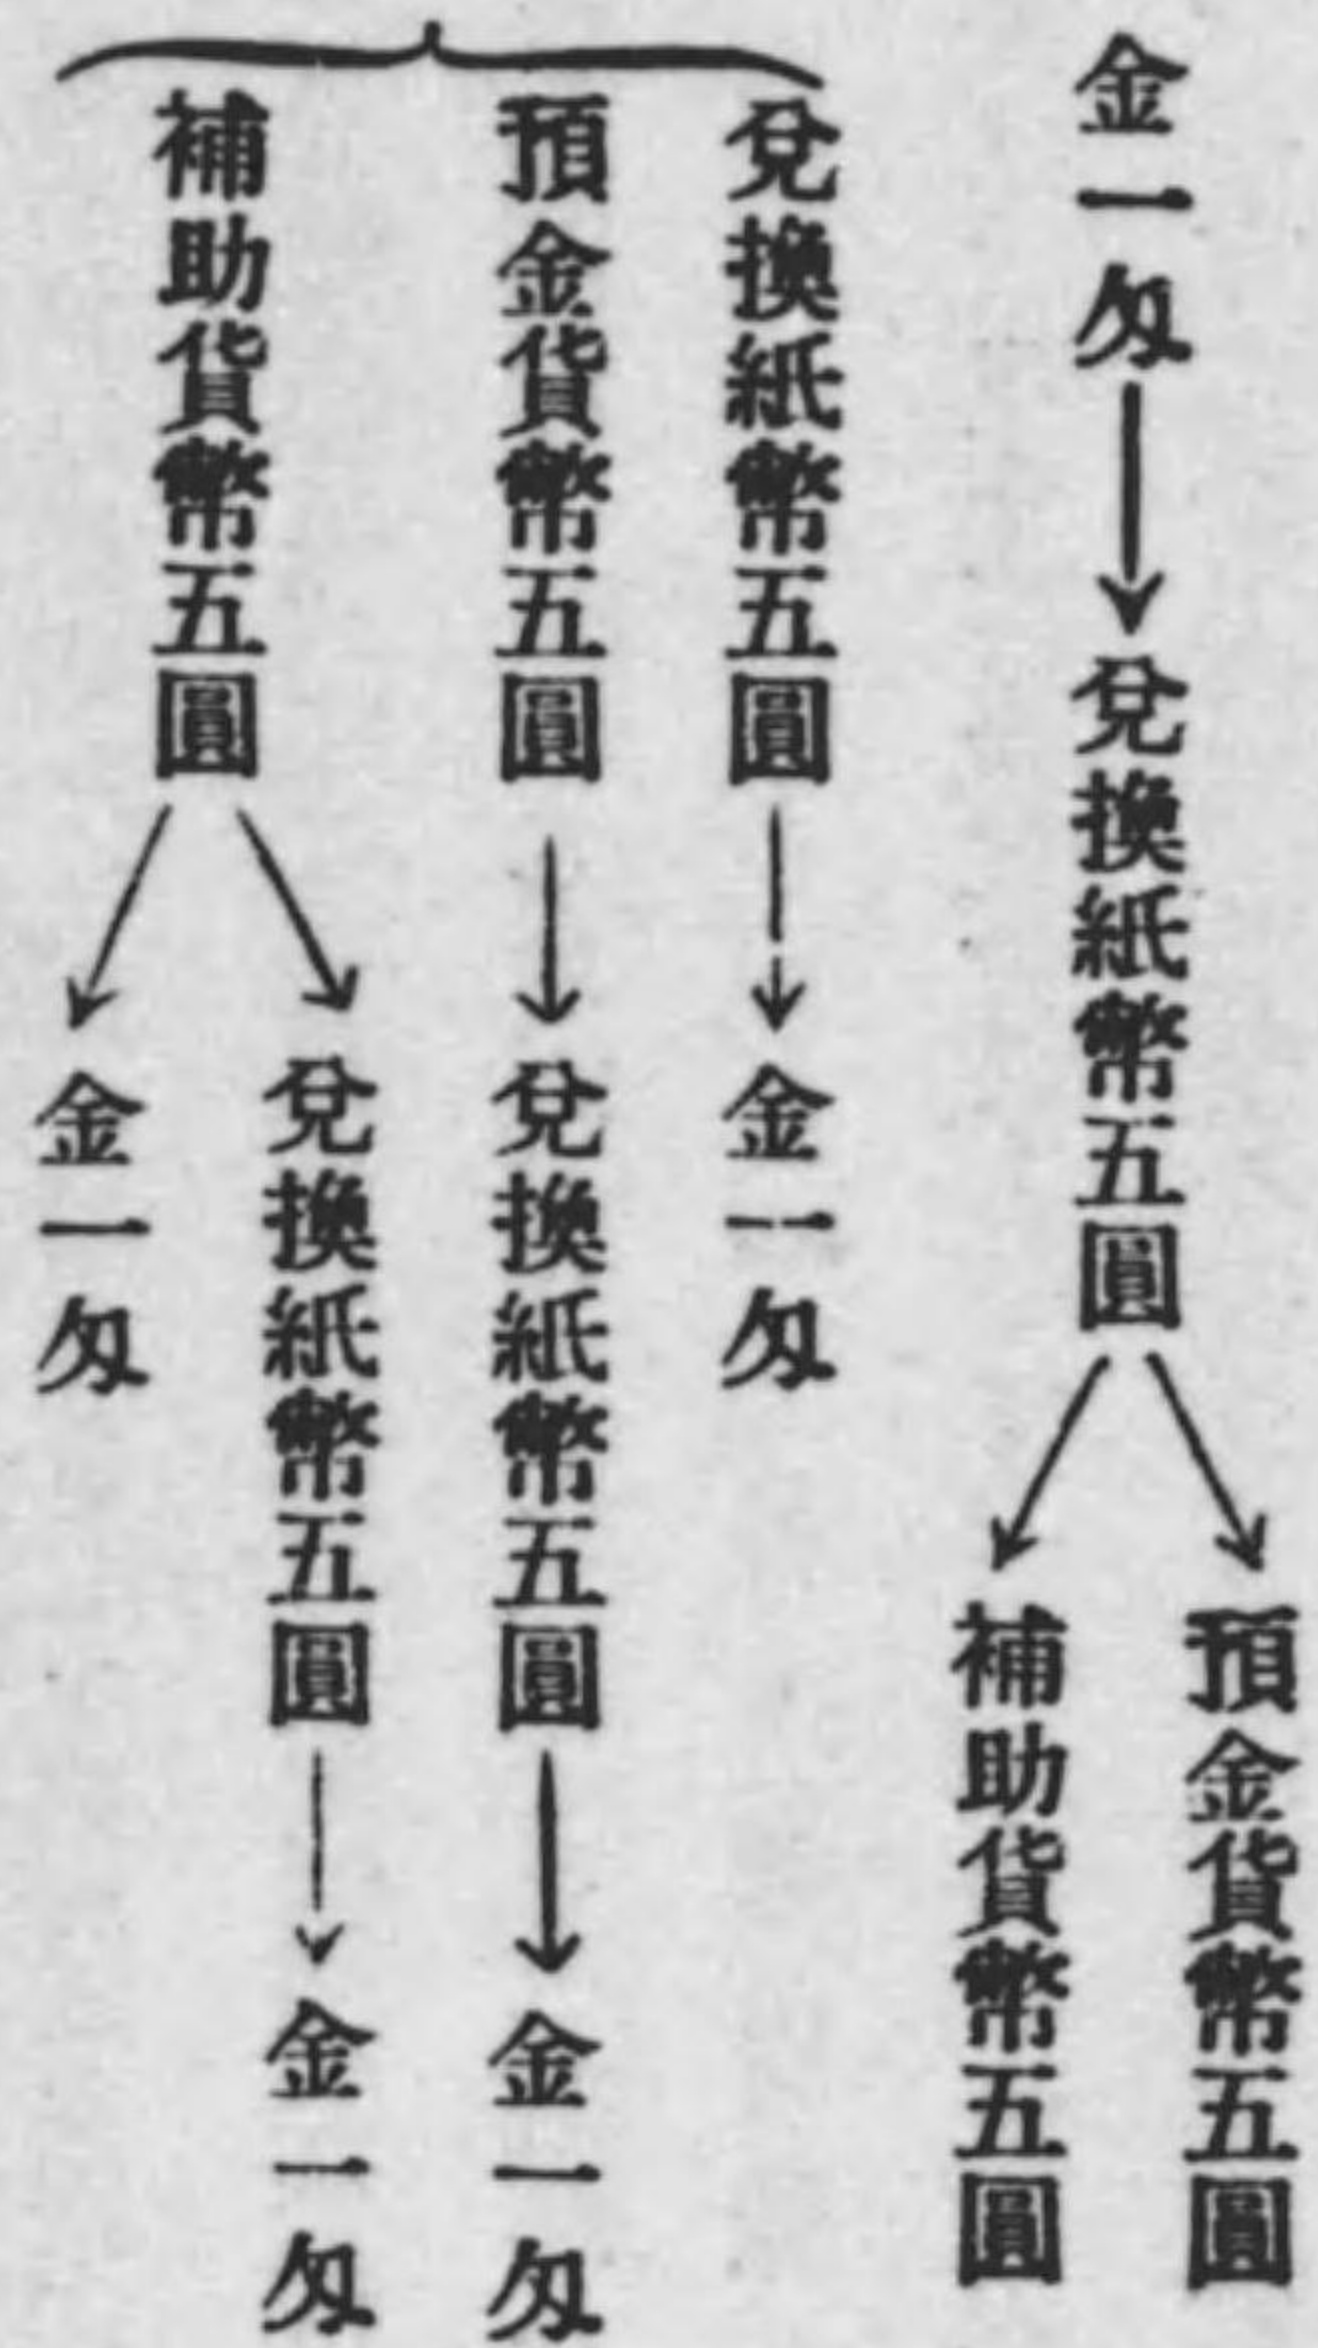 金一匁
兌換紙幣五圓
預金貨幣五圓
補助貨幣五圓
兌換紙幣五圓
金一匁
預金貨幣五圓
兌換紙幣五圓
金一匁
補助貨幣五圓
兌換紙幣五圓
金一匁
金一匁